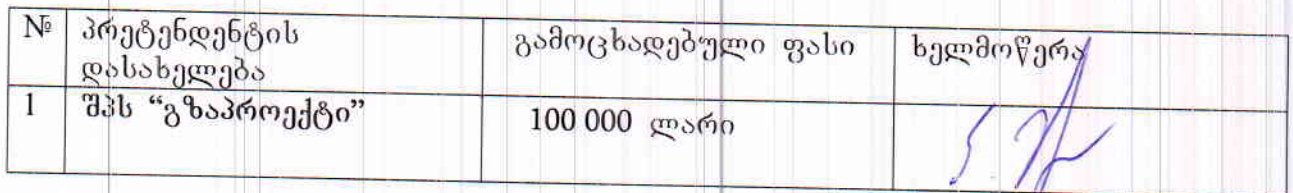 № პრეტენდენტის დასახელება გამოცხადებული ფასი ხელმოწერა
1 შპს “გზაპროექტი” 100 000 ლარი